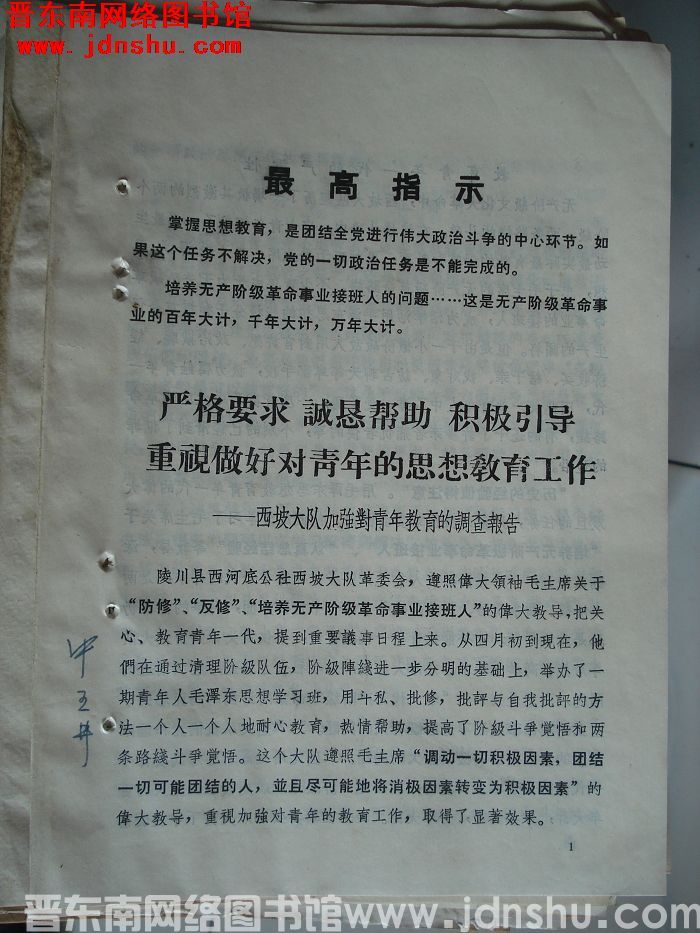 晋东南网络图书馆
www.jdnshu.com
最高指示
掌握思想教育，是团结全党进行伟大政治斗争的中心环节。如
果这个任务不解决，党的一切政治任务是不能完成的。
培养无产阶级革命事业接班人的问题……这是无产阶级革命事
业的百年大计，千年大计，万年大计。
严格要求 誠恳帮助 积极引导
重視做好对靑年的思想敎育工作
——西坡大队加強對青年教育的調查報告
陵川县西河底公社西坡大队革委会，遵照偉大領袖毛主席关于
“防修”、“反修”、“培养无产阶级革命事业接班人”的偉大教导，把关
心、教育青年一代，提到重要議事日程上来。从四月初到現在，他
們在通过清理阶级队伍，阶級陣綫进一步分明的基础上，举办了一
期青年人毛澤东思想学习班，用斗私、批修，批評与自我批評的方
法一个人一个人地耐心教育，热情帮助，提高了阶級斗爭覚悟和两
条路綫斗爭覚悟。这个大队遵照毛主席“调动一切积极因素，团结
一切可能团结的人，並且尽可能地将消极因素转变为积极因素”的
偉大教导，重視加強对青年的教育工作，取得了显著效果。
1
晋东南网络图书馆www.jdnshu.com